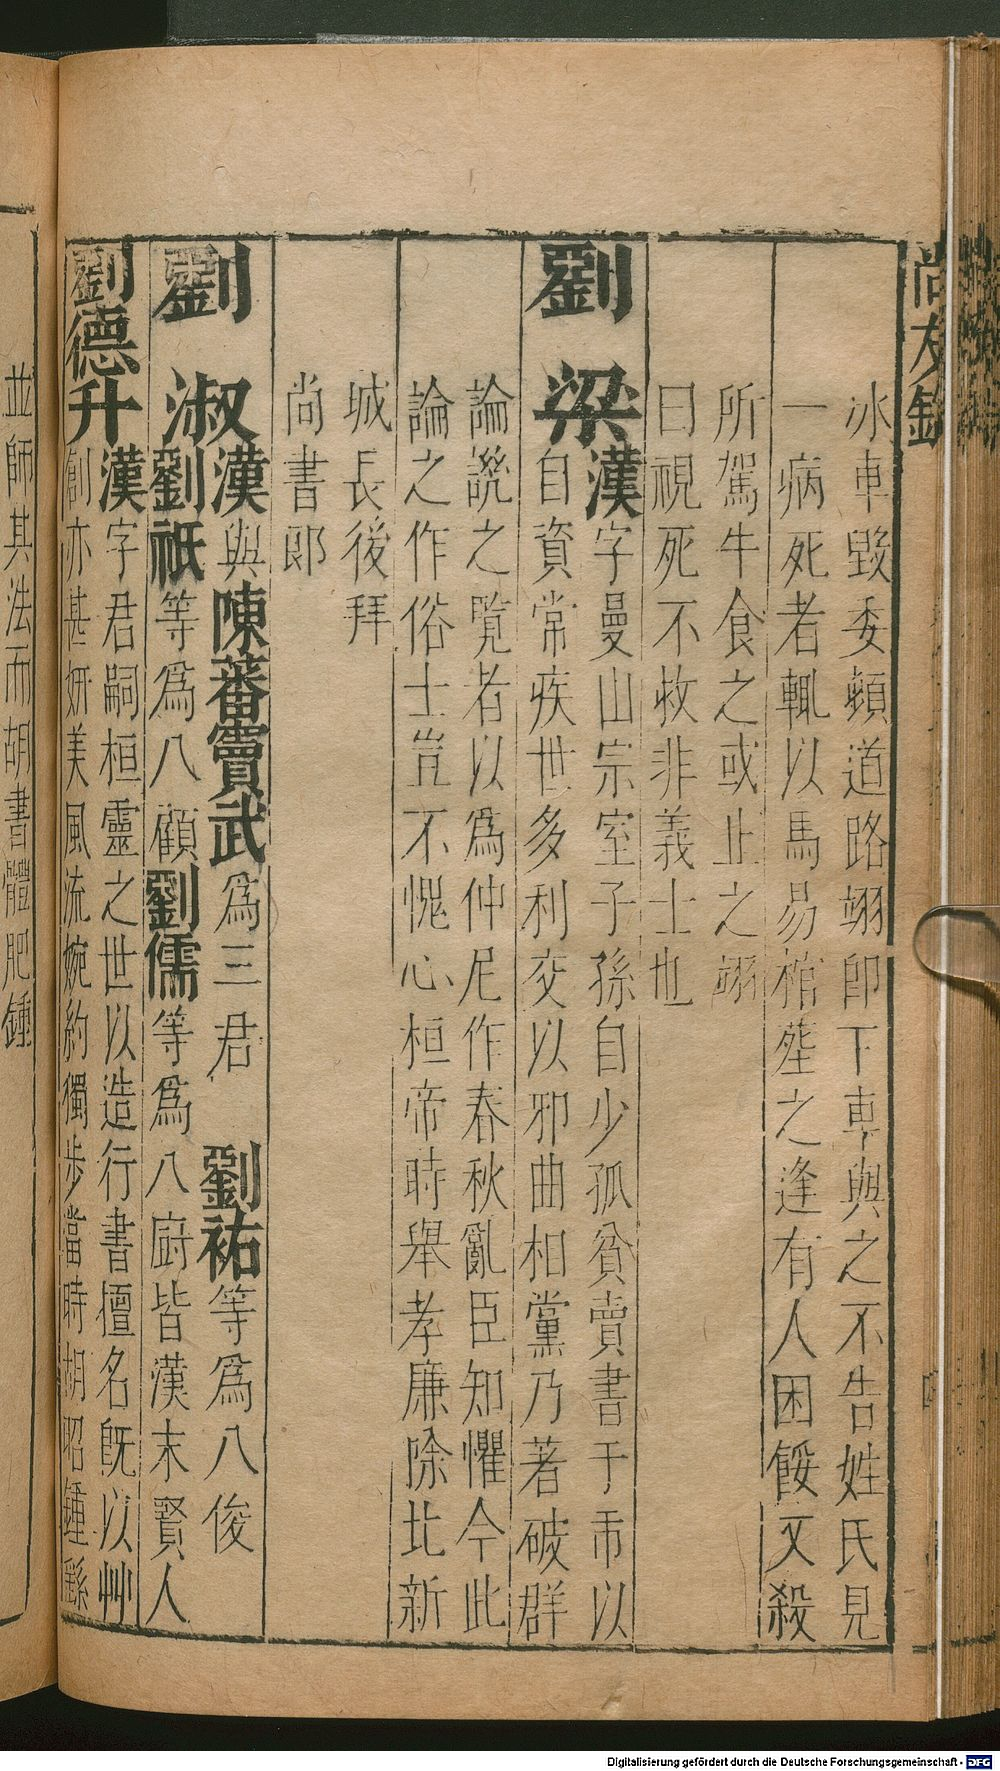 尚友錄
冰車毀委頓道路翊即下車與之不告姓氏見
一病死者輒以馬易棺塟之逢有人困餒又殺
所駕牛食之或止之翊
曰視死不救非義士也
劉梁漢字曼山宗室子孫自少孤貧賣書于市以
自資常疾世多利交以邪曲相黨乃著破群
論說之覽者以爲仲尼作春秋亂臣知懼今此
論之作俗士豈不愧心桓帝時舉孝廉除北新
城長後拜
尚書郎
劉淑漢與陳蕃竇武爲三君 劉祐等爲八俊
劉祗等爲八顧劉儒等爲八廚皆漢末賢人
劉德升漢字君嗣桓靈之世以造行書擅名旣以艸
創亦甚妍美風流婉約獨步當時胡昭鍾繇
並師其法而胡書體肥鍾
Digitalisierung gefördert durch die Deutsche Forschungsgemeinschaft - DFG